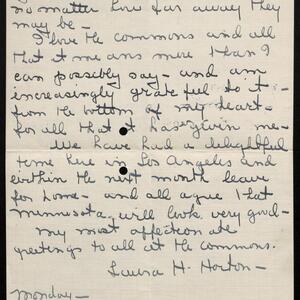 no matter how far away they
may be —
I love the commons and all
that it means more than I
can possibly say — and am
increasingly grateful to it —
from the bottom of my heart —
for all that it has given me —
We have had a delightful
time here in Los Angeles and
within the next month leave
for home — and all agree that
Minnesota will look very good —
my most affectionate
greetings to all at the commons.
Laura H. Horton —
Monday —